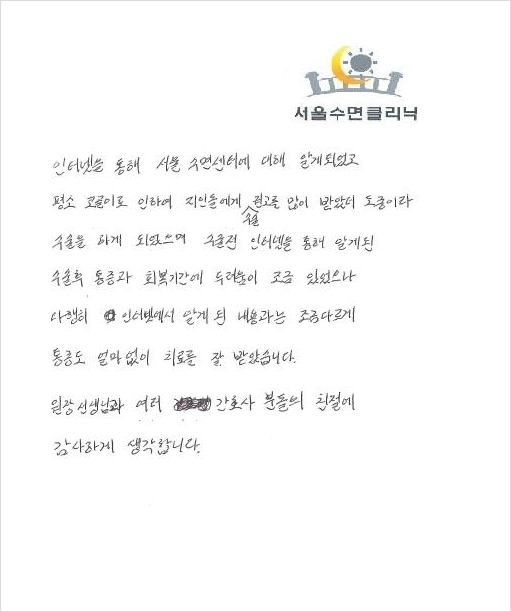 서울수면클리닉
인터넷을 통해 서울 수면센터에 대해 알게되었고
평소 코골이로 인하여 지인들에게 수술 권고를 많이 받았더
수술을 하게 되었으며 수술전 인터넷을 통해 알게된
수술후 통증과 회복기간에 두려움이 조금 있었으나
다행히 인터넷에서 알게 된 내용과는 조금다르게
통증도 얼마없이 치료를 잘 받았습니다.
원장선생님과 여러 간호사 분들의 친절에
감사하게 생각합니다.